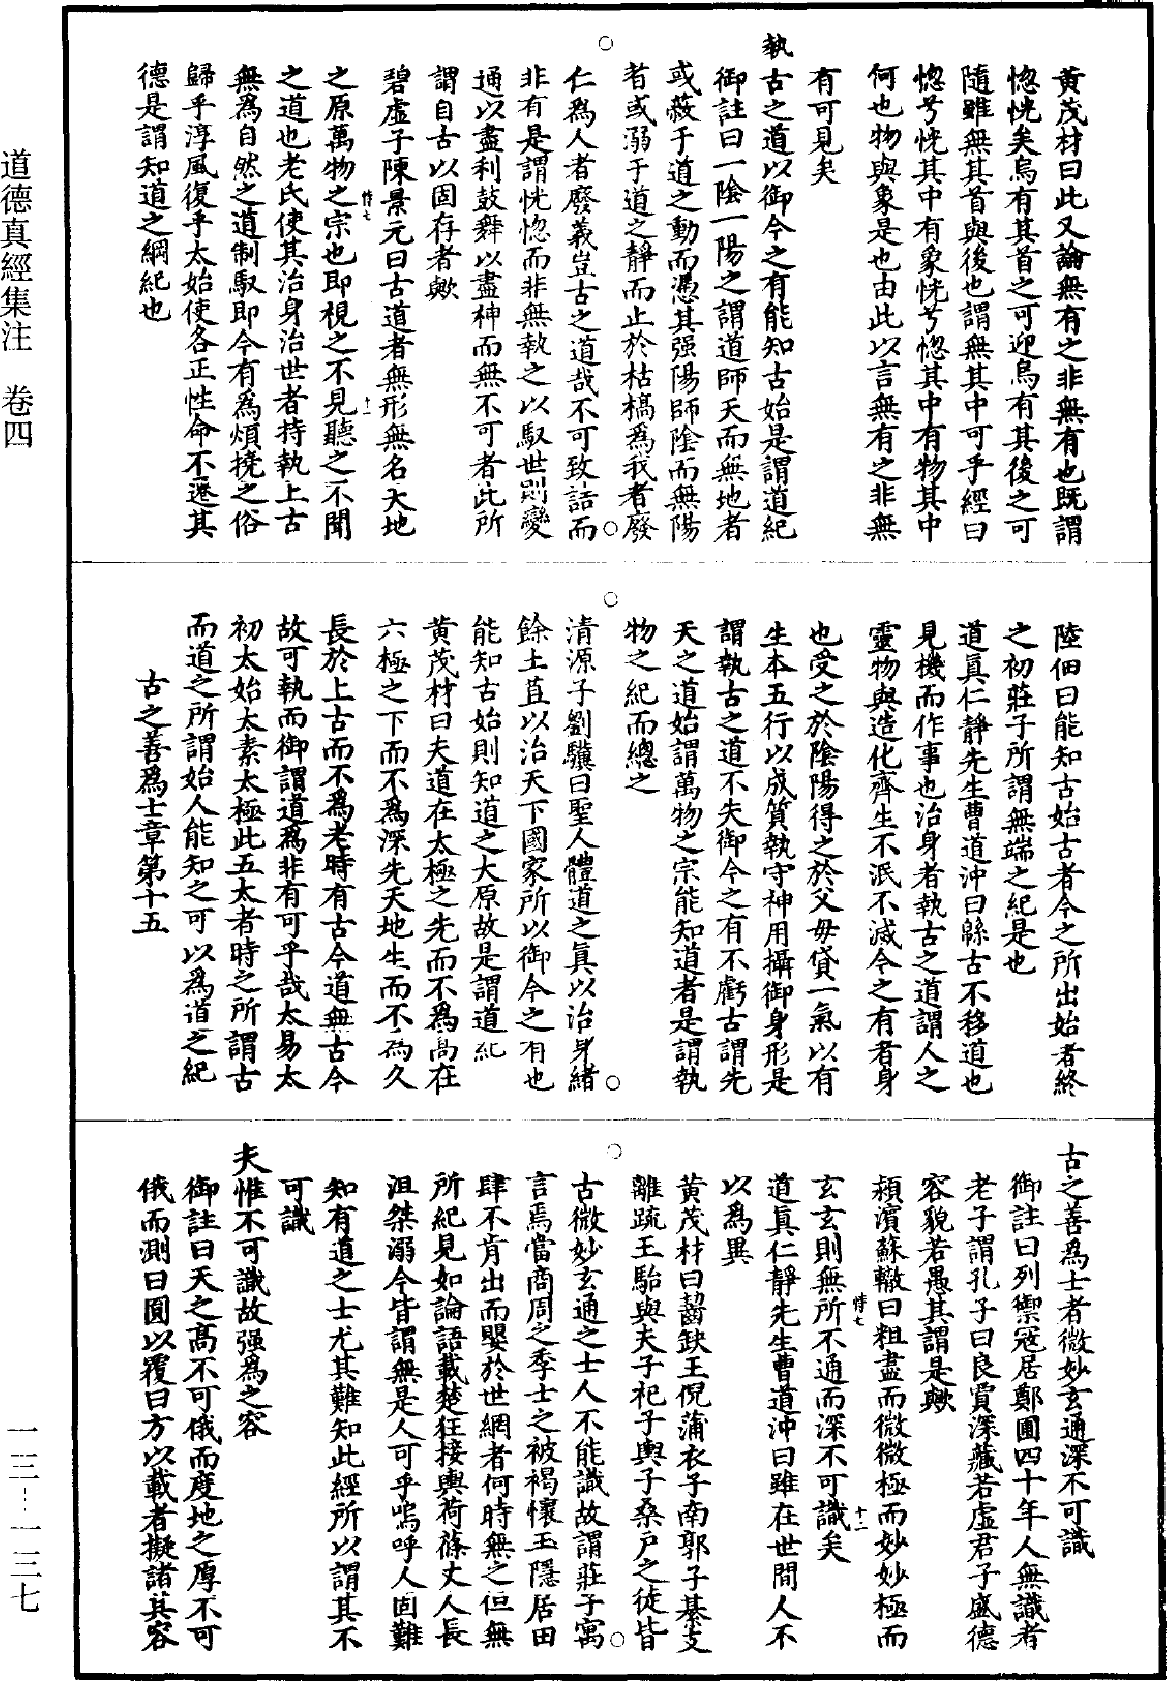 黃茂材曰此又論無有之非無有也既謂
惚恍矣烏有其首之可迎烏有其後之可
隨雖無其首與後也謂無其中可乎經曰
惚兮恍其中有象恍兮惚其中有物其中
何也物與象是也由此以言無有之非無
有可見矣
執古之道以御今之有能知古始是謂道紀
御註曰一陰一陽之謂道師天而無地者
或蔽于道之動而憑其强陽師陰而無陽
者或溺于道之靜而止於枯槁為我者廢
仁為人者廢義豈古之道哉不可致詰而
非有是謂恍惚而非無執之以馭世則變
通以盡利鼓舞以盡神而無不可者此所
謂自古以固存者歟
碧虛子陳景元曰古道者無形無名天地
之原萬物之宗也即視之不見聽之不聞
之道也老氏使其治身治世者持執上古
無為自然之道制馭即今有為煩撓之俗
歸乎淳風復乎太始使各正性命不遷其
德是謂知道之綱紀也
陸佃曰能知古始古者今之所出始者終
之初莊子所謂無端之紀是也
道真仁靜先生曹道沖曰緜古不移道也
見機而作事也治身者執古之道謂人之
靈物與造化齊生不泯不減今之有者身
也受之於陰陽得之於父母貸一氣以有
生本五行以成質執守神用攝御身形是
謂執古之道不失御今之有不虧古謂先
天之道始謂萬物之宗能知道者是謂執
物之紀而總之
清源子劉驥曰聖人體道之真以治身緒
餘土苴以治天下國家所以御今之有也
能知古始則知道之大原故是謂道紀
黃茂材曰夫道在太極之先而不為高在
六極之下而不為深先天地生而不為久
長於上古而不為老時有古今道無古今
故可執而御謂道為非有可乎哉太易太
初太始太素太極此五太者時之所謂古
而道之所謂始人能知之可以為道之紀
古之善為士章第十五
古之善為士者微妙玄通深不可識
御註曰列禦寇居鄭圃四十年人無識者
老子謂孔子曰良賈深藏若虛君子盛德
容貌若愚其謂是歟
潁濱蘇轍曰粗盡而微微極而妙妙極而
玄玄則無所不通而深不可識矣
道真仁靜先生曹道沖曰雖在世間人不
以為異
黃茂材曰齧缺王倪蒲衣子南郭子綦支
離疏王駘與夫子祀子輿子桑戶之徒皆
古微妙玄通之士人不能識故謂莊子寓
言焉當商周之季士之被褐懷玉隱居田
肆不肯出而嬰於世網者何時無之但無
所紀見如論語載楚狂接輿荷蓧丈人長
沮桀溺今皆謂無是人可乎嗚呼人固難
知有道之士尤其難知此經所以謂其不
可識
夫惟不可識故强為之容
御註曰天之高不可俄而度地之厚不可
俄而測曰圓以覆曰方以載者擬諸其容
道德真經集注　卷四
一三—一三七
悖七
十一
悖七
十二